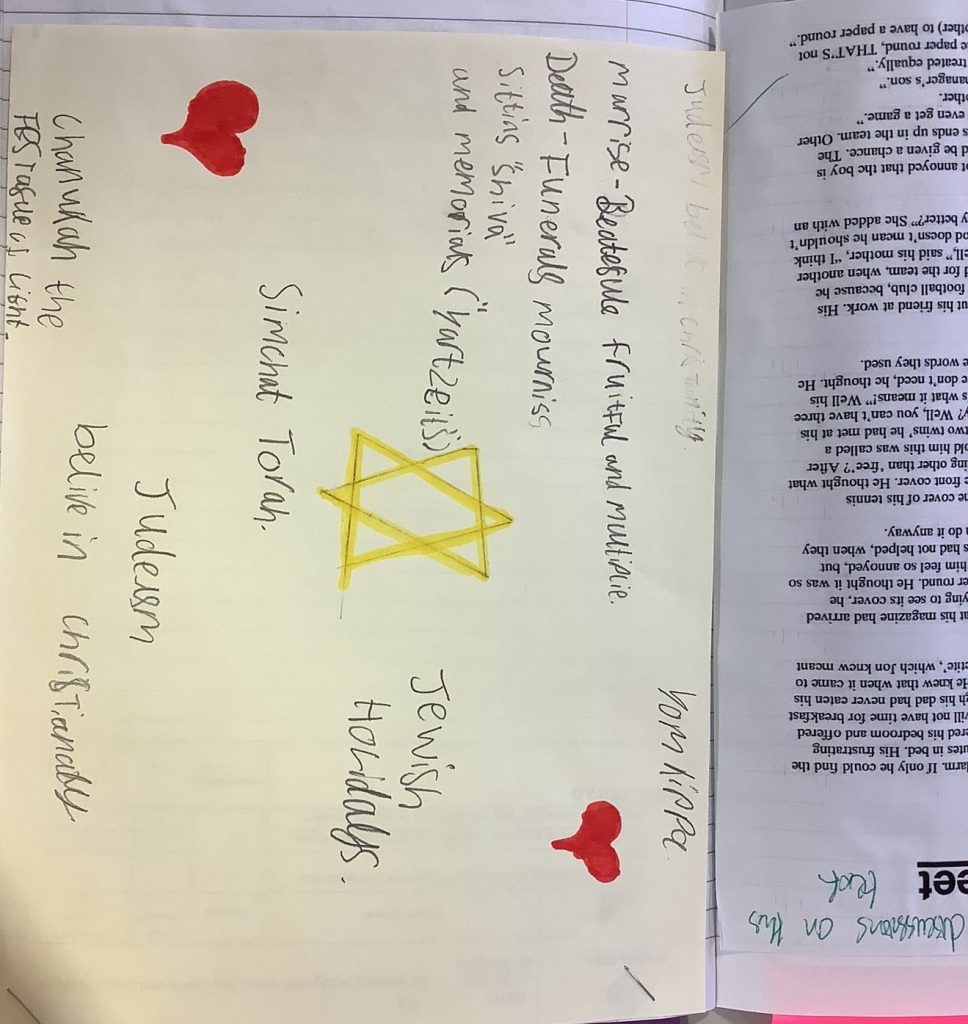 Yom kippe
marrise-Beatefule fruitful and multiplie.
Death-Funerals mourniss
Sittins "Shiva"
and memorials ("yartzeits)
Jewish
Holidays.
Simchat Torah.
Judeism
belive in christianaty.
Chanukah the
discussions on this
eet
larm. If only he could find the
utes in bed. His frustrating
ered his bedroom and offered
will not have time for breakfast
gh his dad had never eaten his
He knew that when it came to
etite', which Jon knew meant
at his magazine had arrived
ying to see its cover, he
er round. He thought it was so
him feel so annoyed, but
s had not helped, when they
n do it anyway.
he cover of his tennis
e front cover. He thought what
ing other than 'free'? After
old him this was called a
two twins' he had met at his
y? Well, you can't have three
s what it means!" Well his
e don't need, he thought. He
e words they used.
ut his friend at work. His
football club, because he
d for the team, when another
ell," said his mother, "I think
od doesn't mean he shouldn't
y better?" She added with an
ot annoyed that the boy is
d be given a chance. The
s ends up in the team. Other
even get a game."
other.
anager's son."
treated equally."
e paper round, THAT'S not
other) to have a paper round."